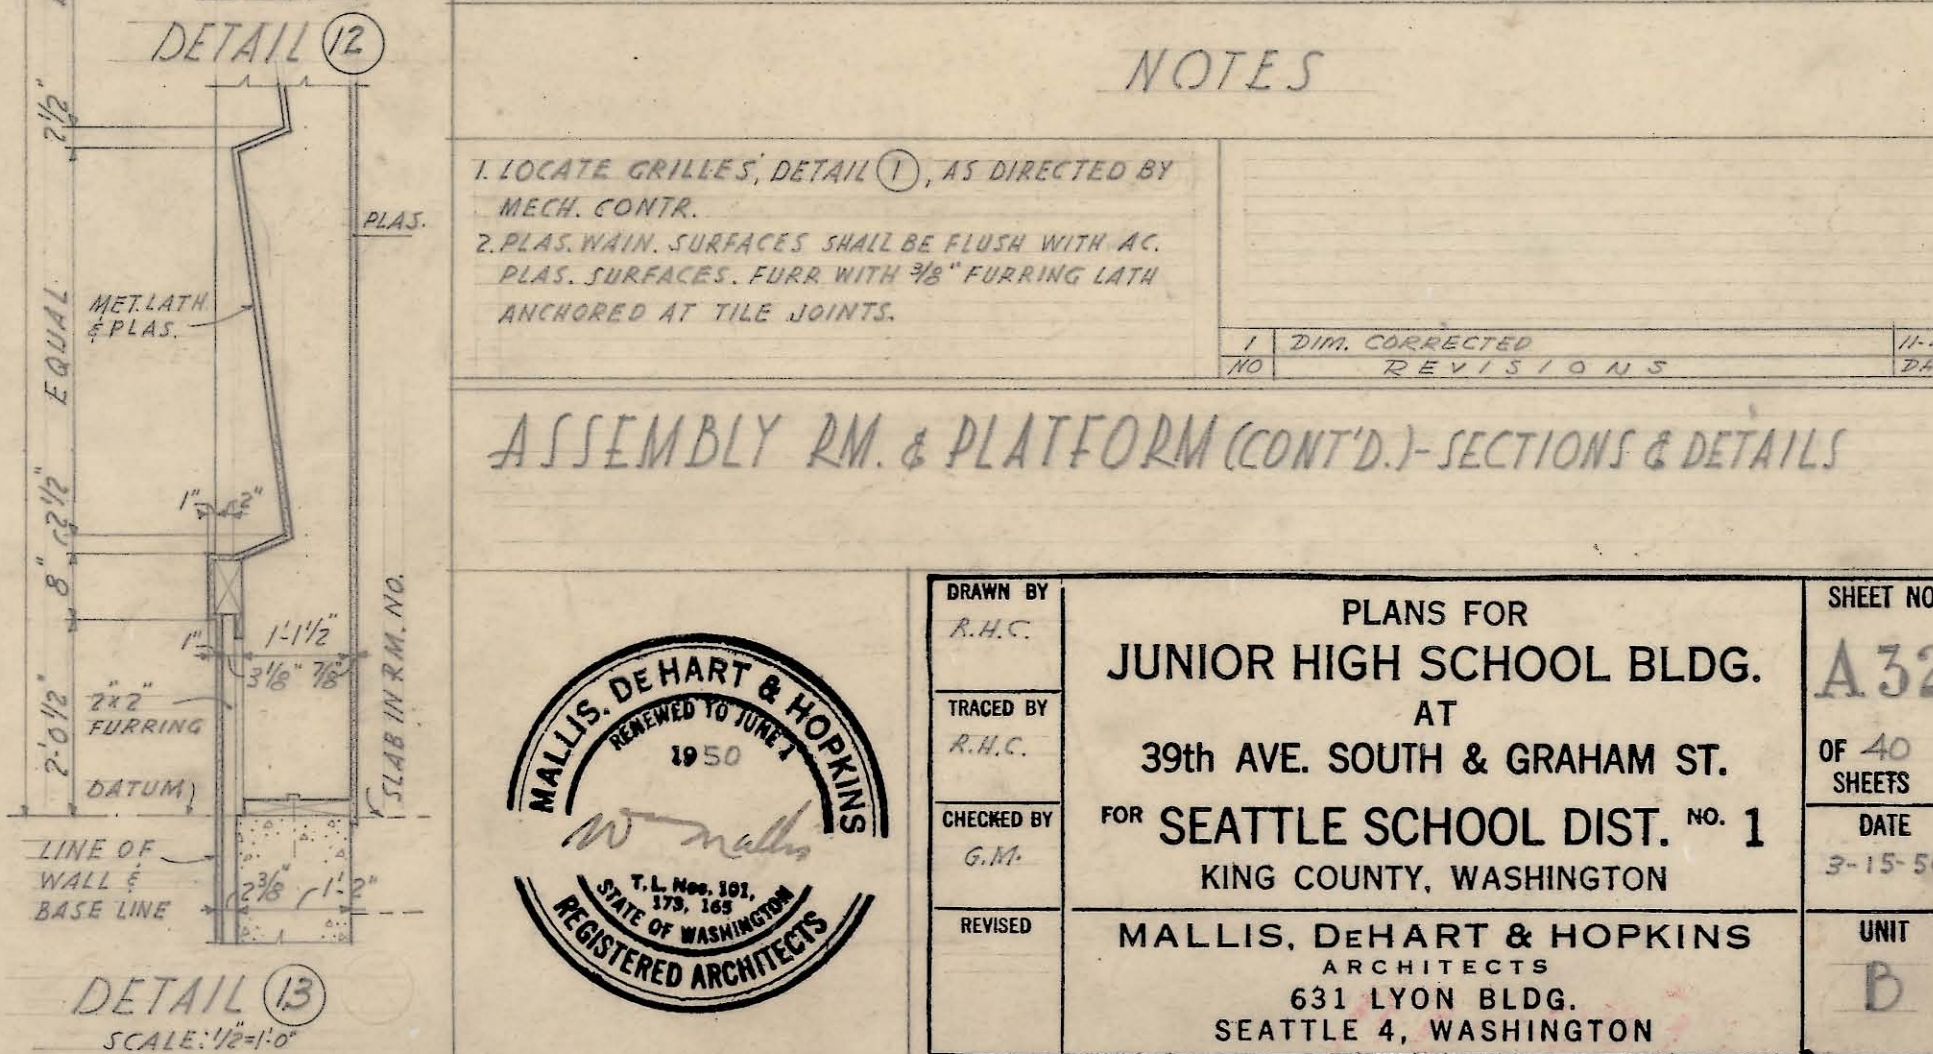 DETAIL 12
2 1/2"
PLAS.
MET. LATH
& PLAS.
EQUAL
1" 2"
2 1/2"
8"
1" 1'-1 1/2"
3 1/8" 7/8"
2"x2"
FURRING
2'-0 1/2"
SLAB IN RM. NO.
DATUM
LINE OF
WALL &
BASE LINE
2 3/8" 1'-2"
DETAIL 13
SCALE: 1/2"=1'-0"
NOTES
1. LOCATE GRILLES, DETAIL 1, AS DIRECTED BY
MECH. CONTR.
2. PLAS. WAIN. SURFACES SHALL BE FLUSH WITH AC.
PLAS. SURFACES. FURR WITH 3/8" FURRING LATH
ANCHORED AT TILE JOINTS.
1 DIM. CORRECTED 11-
NO REVISIONS DA
ASSEMBLY RM. & PLATFORM (CONT'D.)-SECTIONS & DETAILS
MALLIS, DE HART & HOPKINS
RENEWED TO JUNE 1
1950
Wm Mallis
T. L. Nos. 101,
173, 165
STATE OF WASHINGTON
REGISTERED ARCHITECTS
DRAWN BY
R.H.C.
TRACED BY
R.H.C.
CHECKED BY
G.M.
REVISED
PLANS FOR
JUNIOR HIGH SCHOOL BLDG.
AT
39th AVE. SOUTH & GRAHAM ST.
FOR SEATTLE SCHOOL DIST. NO. 1
KING COUNTY, WASHINGTON
MALLIS, DEHART & HOPKINS
ARCHITECTS
631 LYON BLDG.
SEATTLE 4, WASHINGTON
SHEET NO
A32
OF 40
SHEETS
DATE
3-15-50
UNIT
B